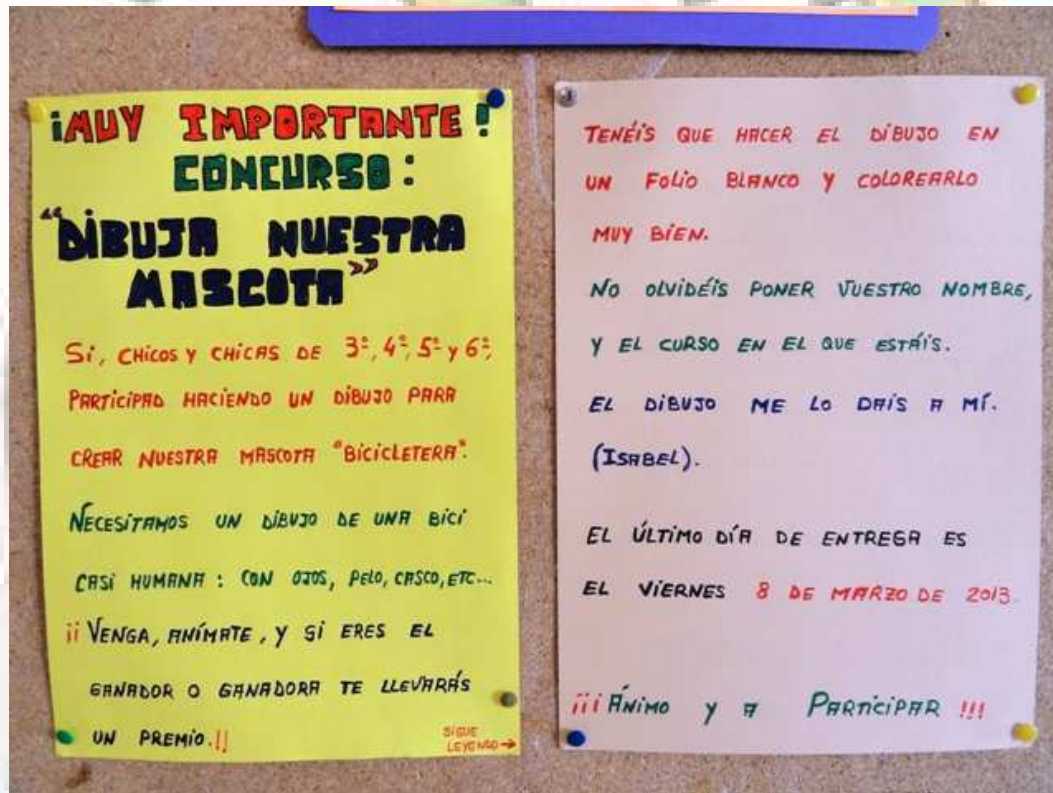 ¡MUY IMPORTANTE!
CONCURSO:
"DIBUJA NUESTRA
MASCOTA"
SI, CHICOS Y CHICAS DE 3º, 4º, 5º Y 6º,
PARTICIPAD HACIENDO UN DIBUJO PARA
CREAR NUESTRA MASCOTA "BICICLETERA".
NECESITAMOS UN DIBUJO DE UNA BICI
CASI HUMANA: CON OJOS, PELO, CASCO, ETC...
¡¡VENGA, ANÍMATE, Y SI ERES EL
GANADOR O GANADORA TE LLEVARÁS
UN PREMIO.!!
SIGUE
LEYENDO→
TENÉIS QUE HACER EL DIBUJO EN
UN FOLIO BLANCO Y COLOREARLO
MUY BIEN.
NO OLVIDÉIS PONER VUESTRO NOMBRE,
Y EL CURSO EN EL QUE ESTÁIS.
EL DIBUJO ME LO DAIS A MÍ.
(ISABEL).
EL ÚLTIMO DÍA DE ENTREGA ES
EL VIERNES 8 DE MARZO DE 2013.
¡¡¡ÁNIMO Y A PARTICIPAR!!!